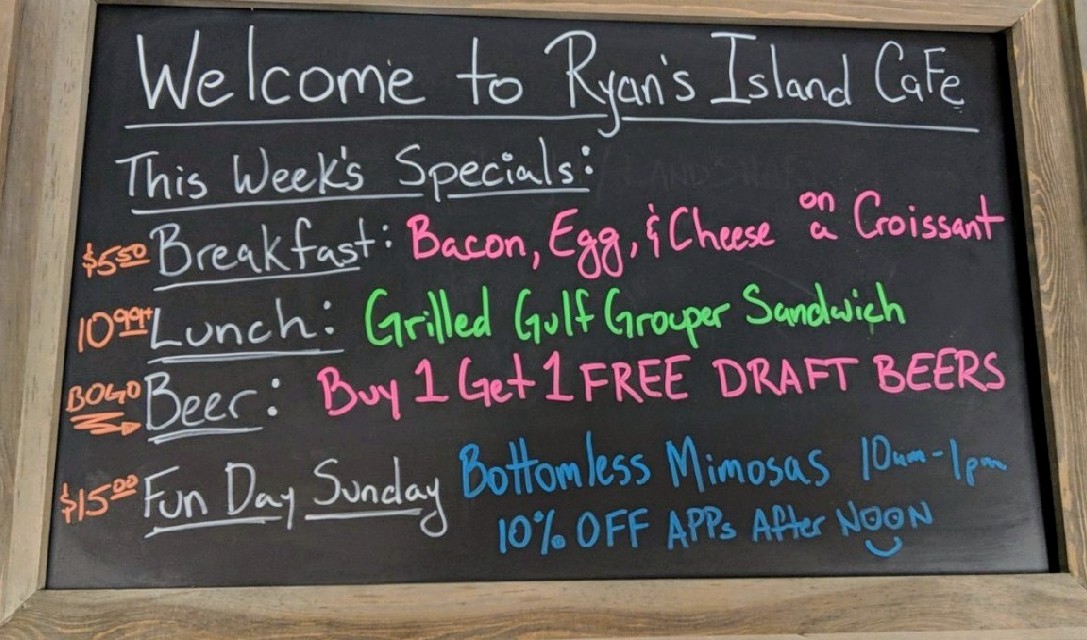 Welcome to Ryan's Island CaFe
This Week's Specials:
$5.50 Breakfast: Bacon, Egg, & Cheese on a Croissant
10.99+ Lunch: Grilled Gulf Grouper Sandwich
BOGO Beer: Buy 1 Get 1 FREE DRAFT BEERS
$15.00 Fun Day Sunday Bottomless Mimosas 10am-1pm
10% OFF APPs After NOON